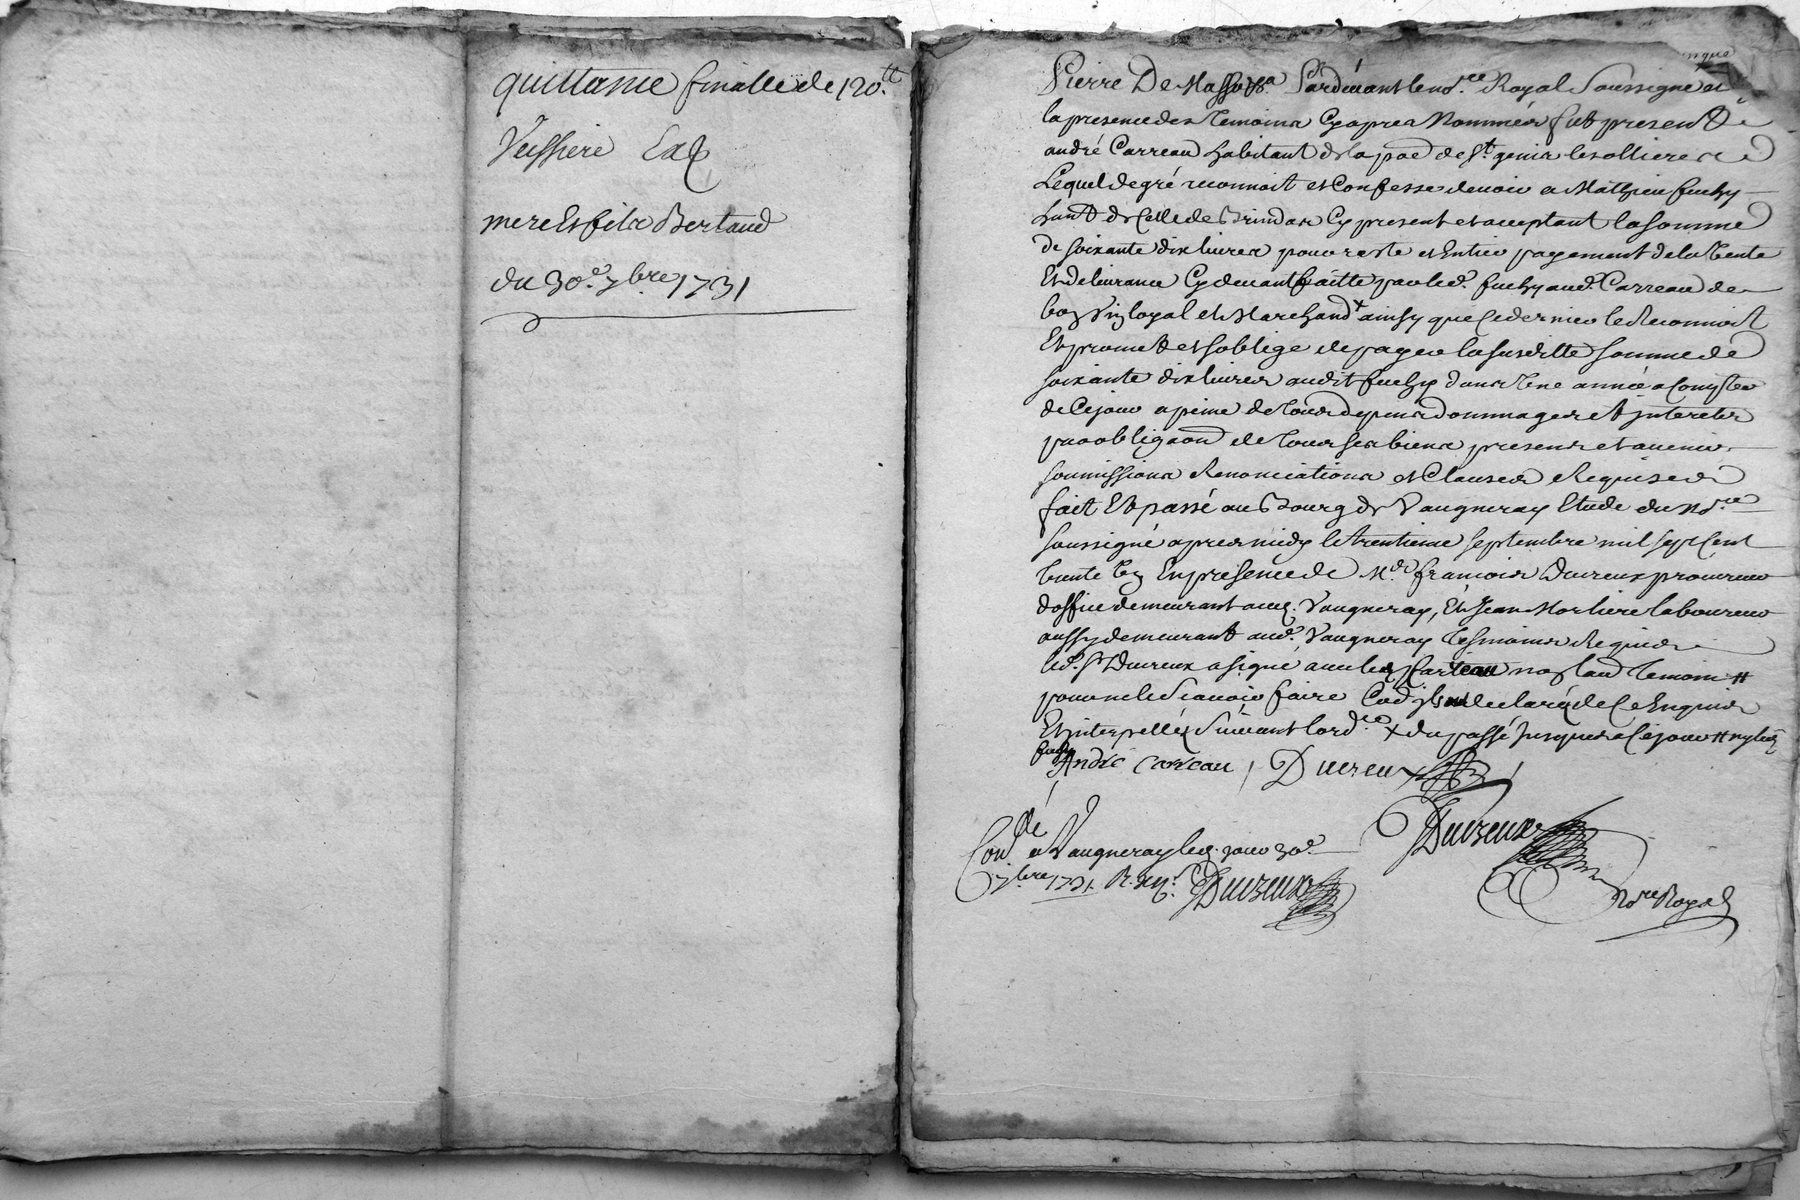 quittance finalle de 120.tt
Veissiere
mere et fils Bertaud
du 30.e 7.bre 1731
Pardevant le no.re Royal Soussigné et
la presence des temoins cy apres Nommés fut present
andré Carreau habitant de la poe de st genis les ollieres
Lequel de gré reconnoit et Confesse devoir a Mathieu fuchy
hant de Celle de Brindas Cy present et acceptant la somme
de soixante dix livres pour reste et Entier payement de la vente
Et delivrance Cy devant faitte par led. fuchy aud. Carreau de
loyal et Marchand + ainsy que ce dernier le Reconnoit
Et promet et soblige de payer la susditte somme de
soixante dix livres audit fuchy dans une année a Compter
de Ce jour a peine de tous depens dommages et interets
par obligaon de tous ses biens presens et avenir
soumissions Renonciations et Clauses Requises
fait Et passé au Bourg de Vaugneray Etude du No.re
soussigné apres midy le trentieme septembre mil sept Cent
trente un En presence de M.e françois Ducreux procureur
doffice demeurant aud. Vaugneray, Et Jean Morliere laboureur
aussy demeurant aud. Vaugneray tesmoins Requis
led. Sr Ducreux a signé avec led. Carreau non lautre temoin #
pour ne le Scavoir faire declaré de ce Enquis
Et interpellés Suivant lord.ce + du passé jusques a Ce jour # ny led.
fuchy
André Carreau / Ducreux
Ducreux
Con.lé a Vaugneray led. jour 30.e
7.bre 1731. R. Ducreux
No.re Royal